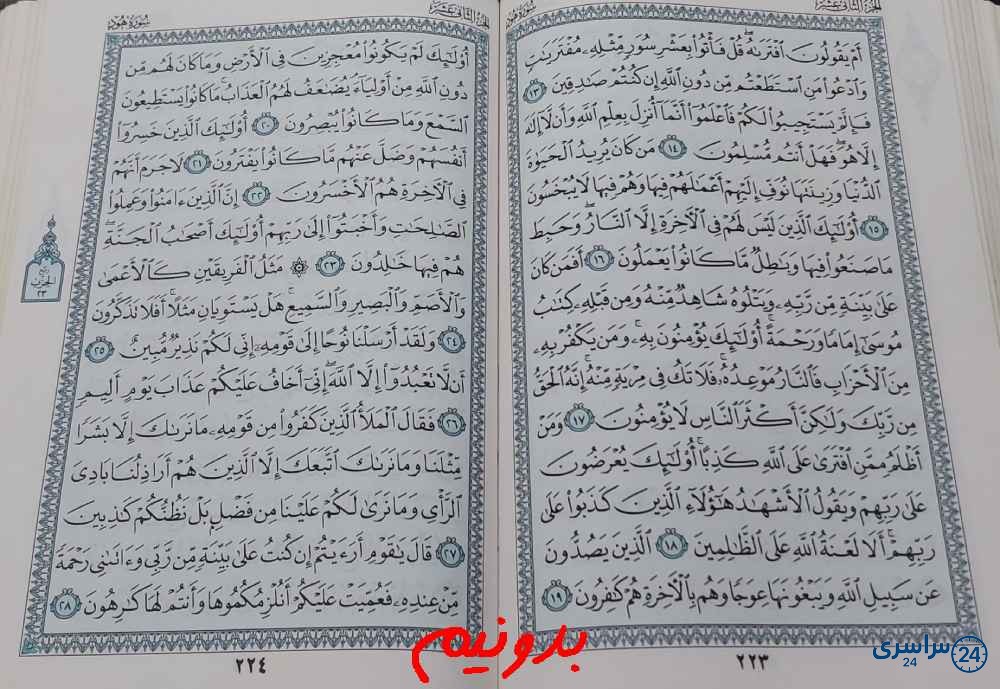 الجزء الثاني عشر
سورة هود
أَمْ يَقُولُونَ ٱفْتَرَىٰهُ ۖ قُلْ فَأْتُوا۟ بِعَشْرِ سُوَرٍ مِّثْلِهِۦ مُفْتَرَيَٰتٍ
وَٱدْعُوا۟ مَنِ ٱسْتَطَعْتُم مِّن دُونِ ٱللَّهِ إِن كُنتُمْ صَٰدِقِينَ ١٣
فَإِلَّمْ يَسْتَجِيبُوا۟ لَكُمْ فَٱعْلَمُوٓا۟ أَنَّمَآ أُنزِلَ بِعِلْمِ ٱللَّهِ وَأَن لَّآ إِلَٰهَ
إِلَّا هُوَ ۖ فَهَلْ أَنتُم مُّسْلِمُونَ ١٤ مَن كَانَ يُرِيدُ ٱلْحَيَوٰةَ
ٱلدُّنْيَا وَزِينَتَهَا نُوَفِّ إِلَيْهِمْ أَعْمَٰلَهُمْ فِيهَا وَهُمْ فِيهَا لَا يُبْخَسُونَ
١٥ أُو۟لَٰٓئِكَ ٱلَّذِينَ لَيْسَ لَهُمْ فِى ٱلْـَٔاخِرَةِ إِلَّا ٱلنَّارُ ۖ وَحَبِطَ
مَا صَنَعُوا۟ فِيهَا وَبَٰطِلٌ مَّا كَانُوا۟ يَعْمَلُونَ ١٦ أَفَمَن كَانَ
عَلَىٰ بَيِّنَةٍ مِّن رَّبِّهِۦ وَيَتْلُوهُ شَاهِدٌ مِّنْهُ وَمِن قَبْلِهِۦ كِتَٰبُ
مُوسَىٰٓ إِمَامًا وَرَحْمَةً ۚ أُو۟لَٰٓئِكَ يُؤْمِنُونَ بِهِۦ ۚ وَمَن يَكْفُرْ بِهِۦ
مِنَ ٱلْأَحْزَابِ فَٱلنَّارُ مَوْعِدُهُۥ ۚ فَلَا تَكُ فِى مِرْيَةٍ مِّنْهُ ۚ إِنَّهُ ٱلْحَقُّ
مِن رَّبِّكَ وَلَٰكِنَّ أَكْثَرَ ٱلنَّاسِ لَا يُؤْمِنُونَ ١٧ وَمَنْ
أَظْلَمُ مِمَّنِ ٱفْتَرَىٰ عَلَى ٱللَّهِ كَذِبًا ۚ أُو۟لَٰٓئِكَ يُعْرَضُونَ
عَلَىٰ رَبِّهِمْ وَيَقُولُ ٱلْأَشْهَٰدُ هَٰٓؤُلَآءِ ٱلَّذِينَ كَذَبُوا۟ عَلَىٰ
رَبِّهِمْ ۚ أَلَا لَعْنَةُ ٱللَّهِ عَلَى ٱلظَّٰلِمِينَ ١٨ ٱلَّذِينَ يَصُدُّونَ
عَن سَبِيلِ ٱللَّهِ وَيَبْغُونَهَا عِوَجًا وَهُم بِٱلْـَٔاخِرَةِ هُمْ كَٰفِرُونَ ١٩
٢٢٣
الجزء الثاني عشر
سورة هود
أُو۟لَٰٓئِكَ لَمْ يَكُونُوا۟ مُعْجِزِينَ فِى ٱلْأَرْضِ وَمَا كَانَ لَهُم مِّن
دُونِ ٱللَّهِ مِنْ أَوْلِيَآءَ ۘ يُضَٰعَفُ لَهُمُ ٱلْعَذَابُ ۚ مَا كَانُوا۟ يَسْتَطِيعُونَ
ٱلسَّمْعَ وَمَا كَانُوا۟ يُبْصِرُونَ ٢٠ أُو۟لَٰٓئِكَ ٱلَّذِينَ خَسِرُوٓا۟
أَنفُسَهُمْ وَضَلَّ عَنْهُم مَّا كَانُوا۟ يَفْتَرُونَ ٢١ لَا جَرَمَ أَنَّهُمْ
فِى ٱلْـَٔاخِرَةِ هُمُ ٱلْأَخْسَرُونَ ٢٢ إِنَّ ٱلَّذِينَ ءَامَنُوا۟ وَعَمِلُوا۟
ٱلصَّٰلِحَٰتِ وَأَخْبَتُوٓا۟ إِلَىٰ رَبِّهِمْ أُو۟لَٰٓئِكَ أَصْحَٰبُ ٱلْجَنَّةِ ۖ
هُمْ فِيهَا خَٰلِدُونَ ٢٣ ۞ مَثَلُ ٱلْفَرِيقَيْنِ كَٱلْأَعْمَىٰ
وَٱلْأَصَمِّ وَٱلْبَصِيرِ وَٱلسَّمِيعِ ۚ هَلْ يَسْتَوِيَانِ مَثَلًا ۚ أَفَلَا تَذَكَّرُونَ
٢٤ وَلَقَدْ أَرْسَلْنَا نُوحًا إِلَىٰ قَوْمِهِۦٓ إِنِّى لَكُمْ نَذِيرٌ مُّبِينٌ ٢٥
أَن لَّا تَعْبُدُوٓا۟ إِلَّا ٱللَّهَ ۖ إِنِّىٓ أَخَافُ عَلَيْكُمْ عَذَابَ يَوْمٍ أَلِيمٍ
٢٦ فَقَالَ ٱلْمَلَأُ ٱلَّذِينَ كَفَرُوا۟ مِن قَوْمِهِۦ مَا نَرَىٰكَ إِلَّا بَشَرًا
مِّثْلَنَا وَمَا نَرَىٰكَ ٱتَّبَعَكَ إِلَّا ٱلَّذِينَ هُمْ أَرَاذِلُنَا بَادِىَ
ٱلرَّأْىِ وَمَا نَرَىٰ لَكُمْ عَلَيْنَا مِن فَضْلٍۭ بَلْ نَظُنُّكُمْ كَٰذِبِينَ
٢٧ قَالَ يَٰقَوْمِ أَرَءَيْتُمْ إِن كُنتُ عَلَىٰ بَيِّنَةٍ مِّن رَّبِّى وَءَاتَىٰنِى رَحْمَةً
مِّنْ عِندِهِۦ فَعُمِّيَتْ عَلَيْكُمْ أَنُلْزِمُكُمُوهَا وَأَنتُمْ لَهَا كَٰرِهُونَ ٢٨
٢٢٤
الحزب
٢٣
بدونیم
سراسری 24
24